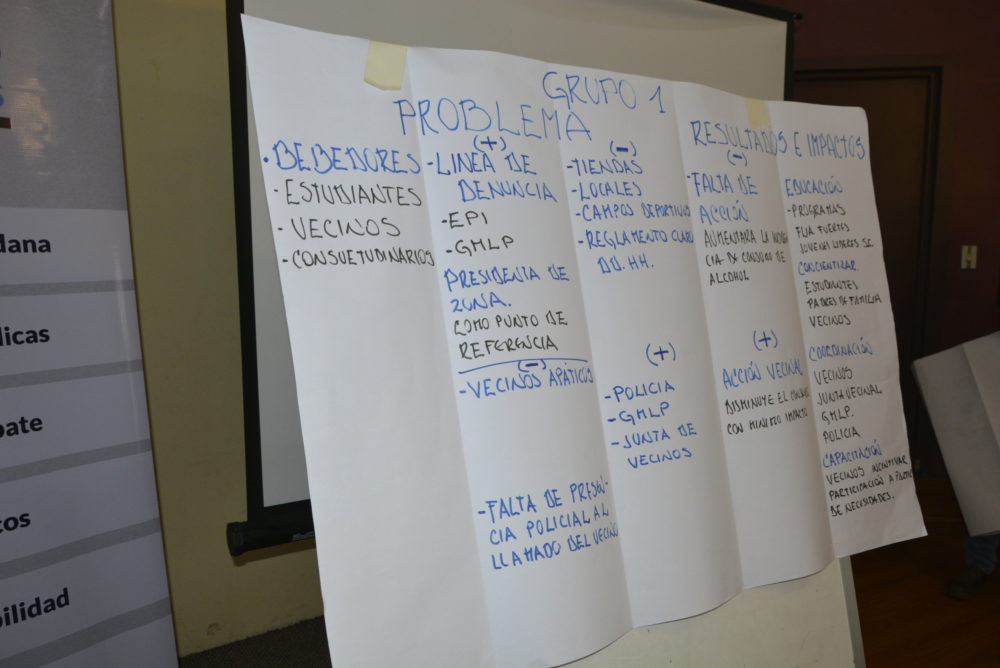 GRUPO 1
PROBLEMA
• BEBEDORES
- ESTUDIANTES
- VECINOS
- CONSUETUDINARIOS
(+)
- LINEA DE
DENUNCIA
- EPI
- GMLP
PRESIDENTA DE
ZONA.
COMO PUNTO DE
REFERENCIA
(-)
- VECINOS APÁTICOS
- FALTA DE PRESEN-
CIA POLICIAL AL
LLAMADO DEL VECINO
(-)
- TIENDAS
- LOCALES
- CAMPOS DEPORTIVOS
- REGLAMENTO CLARO
DD. HH.
(+)
- POLICIA
- GMLP
- JUNTA DE
VECINOS
RESULTADOS E IMPACTOS
(-)
- FALTA DE
ACCIÓN
AUMENTARA LA
CIA DE CONSUMO DE
ALCOHOL
(+)
ACCIÓN VECINAL
DISMINUYE EL
CON MINIMO IMPACTO
EDUCACIÓN
- PROGRAMAS
FUERTES
JOVENES LIDERES S.C.
CONCIENTIZAR.
ESTUDIANTES
PADRES DE FAMILIA
VECINOS
COORDINACIÓN
VECINOS
JUNTA VECINAL
GMLP.
POLICIA
CAPACITACIÓN
VECINOS INCENTIVAR
PARTICIPACIÓN A
DE NECESIDADES.
dana
licas
bate
cos
bilidad